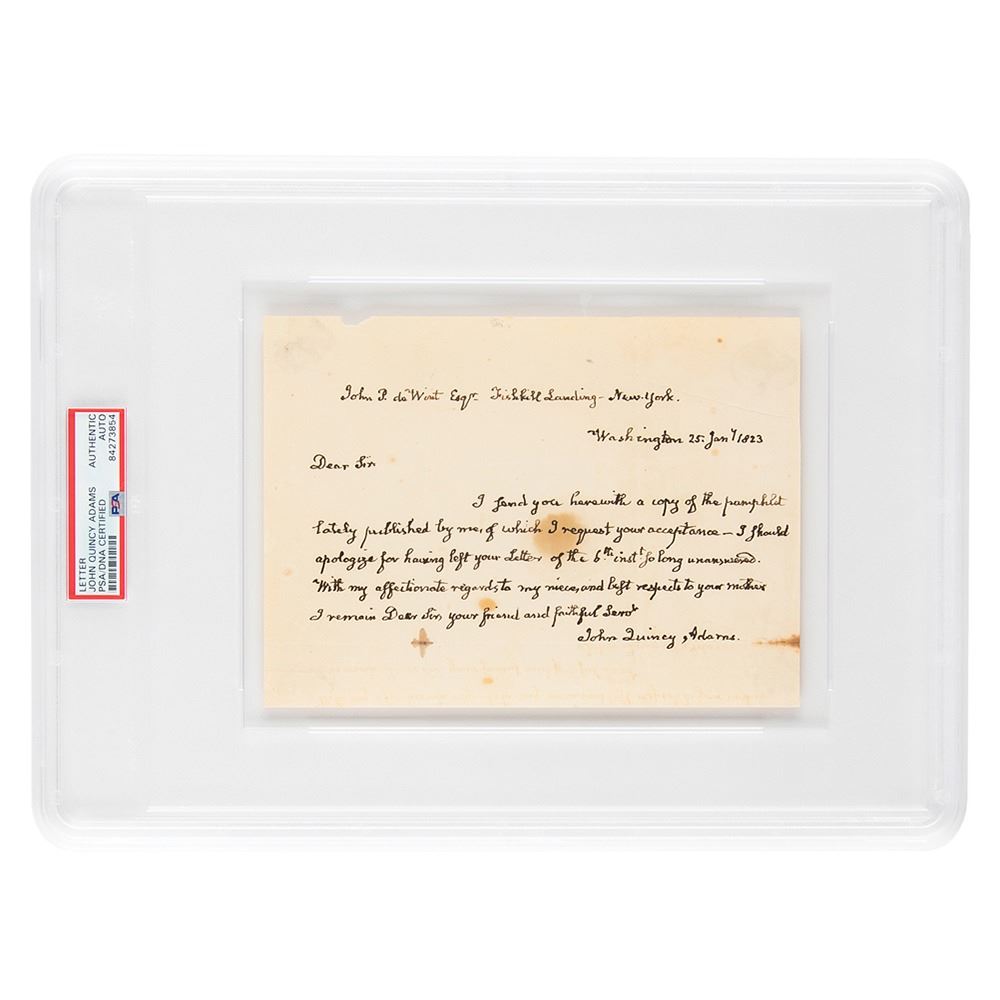 LETTER
JOHN QUINCY ADAMS
PSA/DNA CERTIFIED
AUTHENTIC
AUTO
84273854
PSA
John P. de Wint Esqr. Fishkill Landing - New-York.
Washington 25. Jany 1823
Dear Sir
I send you herewith a copy of the pamphlet
lately published by me, of which I request your acceptance — I should
apologize for having left your Letter of the 6th. inst. so long unanswered.
With my affectionate regards to my niece, and best respects to your mother
I remain Dear Sir, your friend and faithful Servt
John Quincy Adams.